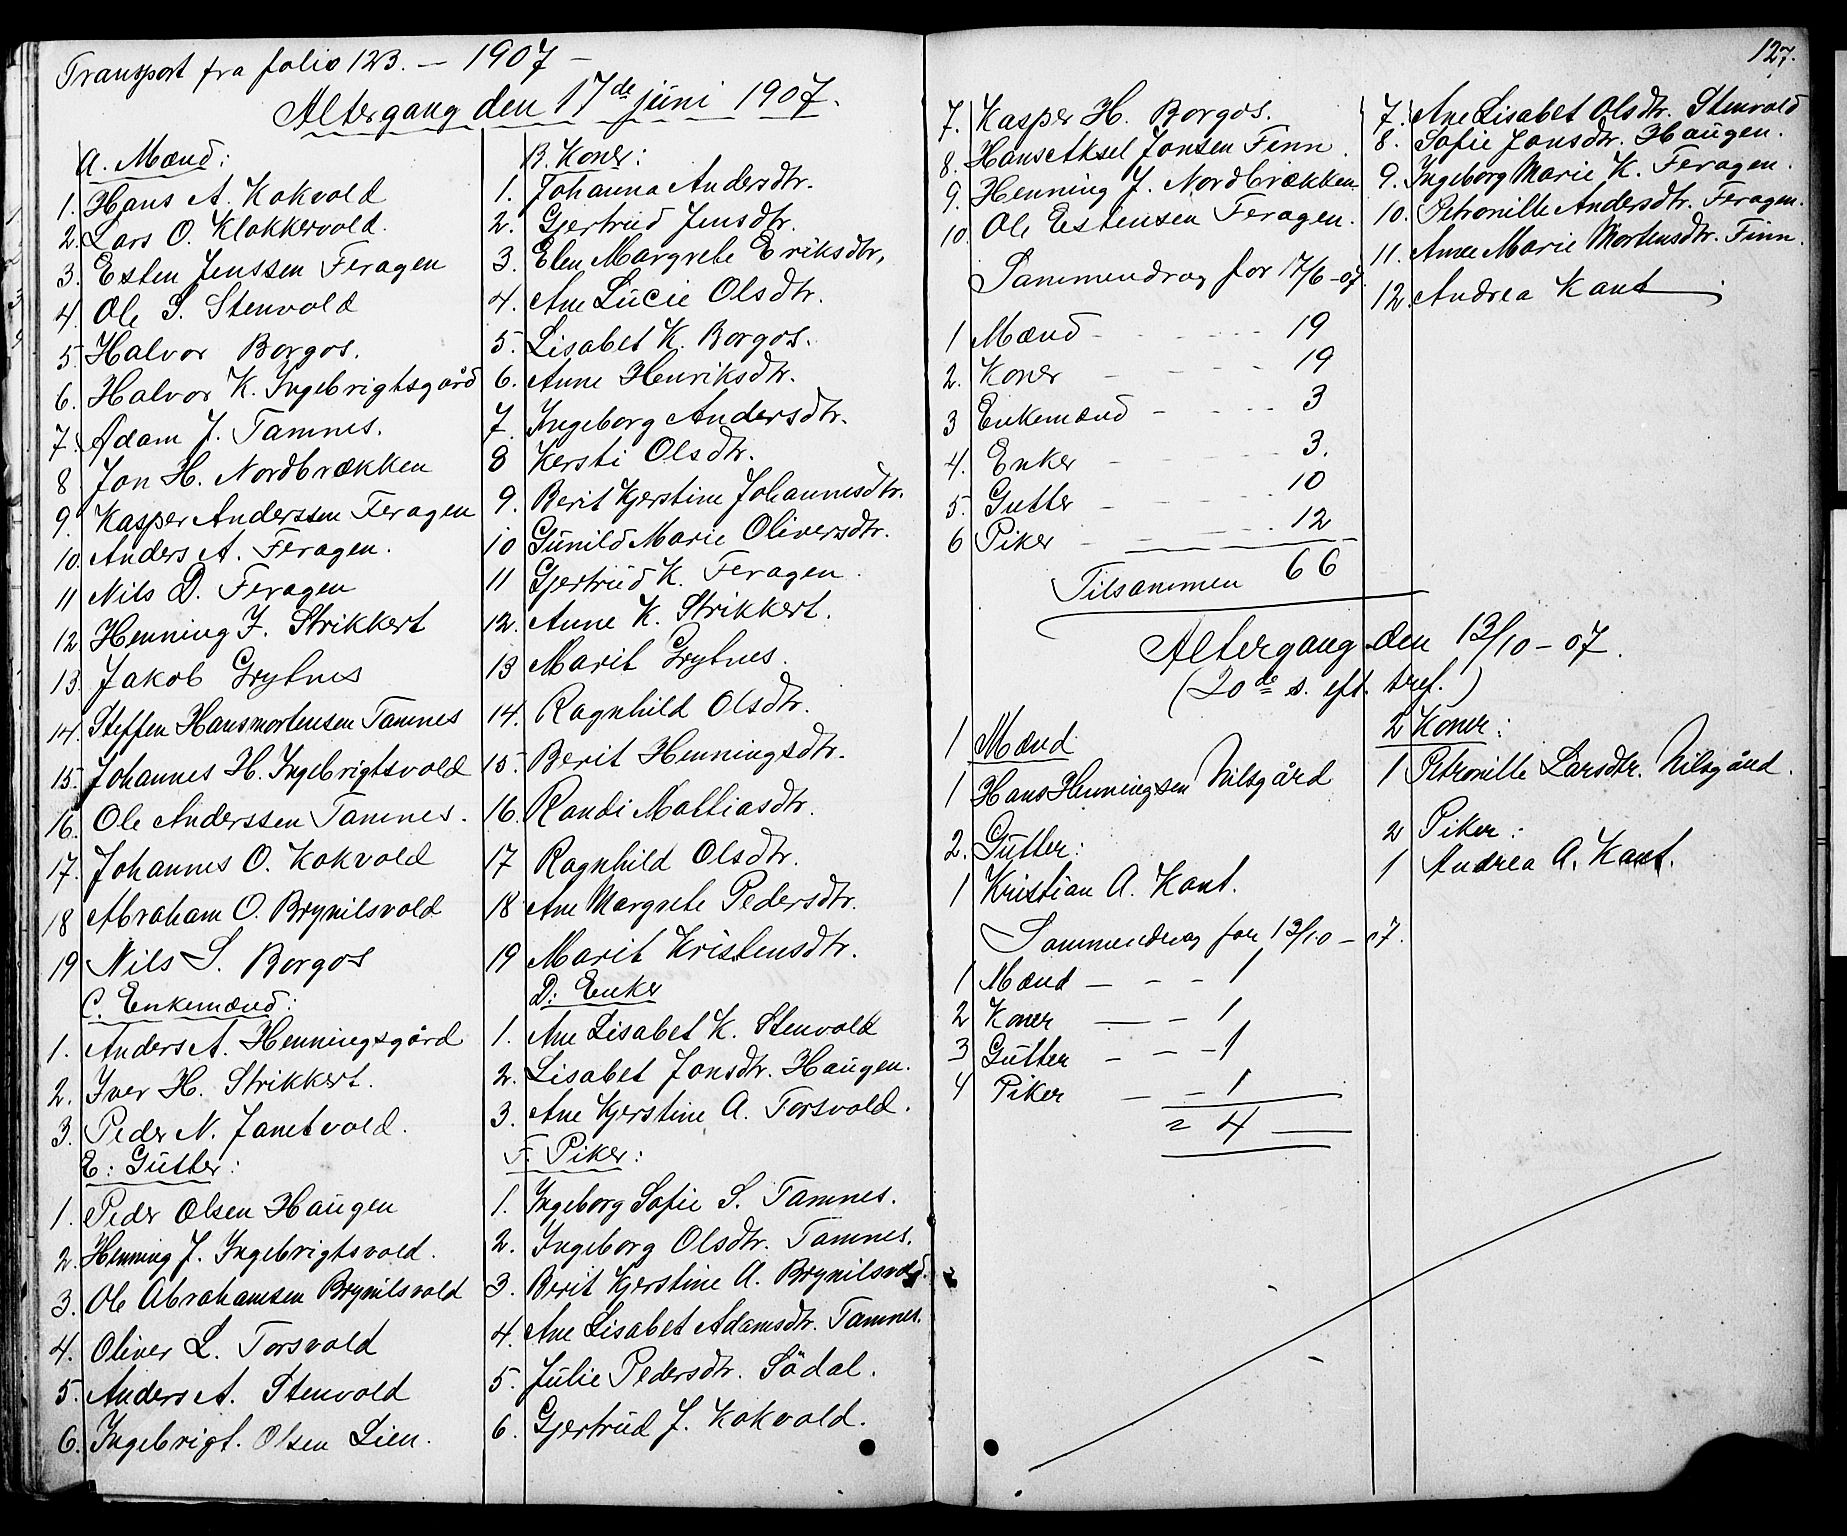 Transport fra folio 123. — 1907 —
Altergang den 17de juni 1907.
A. Mænd:
1. Hans A. Kokvold
2. Lars O. Klokkervold.
3. Esten Jenssen Feragen
4. Ole S. Stenvold
5. Halvor Borgos.
6. Halvor K. Ingebrigtsgård
7. Adam J. Tamnes.
8. Jon H. Nordbrækken
9. Kasper Anderssen Feragen
10. Anders A. Feragen.
11 Nils D. Feragen
12. Henning J. Strikkert
13. Jakob Grytnes
14. Steffen Hansmortensen Tamnes
15. Johannes H. Ingebrigtsvold
16. Ole Anderssen Tamnes.
17. Johannes O. Kokvold
18 Abraham O. Brynilsvold
19 Nils S. Borgos
C. Enkemænd:
1. Anders A. Henningsgård
2. Iver H. Strikkert.
3. Peder N. Jametvold.
E: Gutter:
1. Peder Olsen Haugen
2. Henning J. Ingebrigtsvold.
3. Ole Abrahamsen Brynilsvold
4. Oliver L. Torsvold
5. Anders A. Stenvold
6. Ingebrigt. Olsen Lien.
B. Koner:
1. Johanna Andersdtr.
2. Gjertrud Jensdtr.
3. Elen Margrete Eriksdtr,
4. Ane Lucie Olsdtr.
5. Lisabet K. Borgos.
6. Anne Henriksdtr.
7. Ingeborg Andersdtr.
8 Kersti Olsdtr.
9. Berit Kjerstine Johannesdtr.
10 Gunild Marie Oliversdtr.
11 Gjertrud K. Feragen.
12. Anne K. Strikkert.
13 Marit Grytnes.
14. Ragnhild Olsdtr.
15. Berit Henningsdtr.
16. Randi Mattiasdtr.
17 Ragnhild Olsdtr.
18 Ane Margrete Pedersdtr.
19 Marit Kristensdtr.
D: Enker
1. Ane Lisabet K. Stenvold
2. Lisabet Jonsdtr. Haugen.
3. Ane Kjerstine A. Torsvold.
F. Piker:
1. Ingeborg Sofie S. Tamnes.
2. Ingeborg Olsdtr. Tamnes.
3. Berit Kjerstine A. Brynilsvold.
4. Ane Lisabet Adamsdtr. Tamnes.
5. Julie Pedersdtr. Södal.
6. Gjertrud J. Kokvold.
127.
7. Kasper H. Borgos.
8. Hans Aksel Jonsen Finn.
9. Henning J. Nordbrækken
10. Ole Estensen Feragen.
Sammendrag for 17/6-07.
1 Mænd - - - 19
2. Koner - - - 19
3 Enkemænd - - - 3
4. Enker - - - 3.
5. Gutter - - - 10
6 Piker - - - 12
Tilsammen 66
7. Ane Lisabet Olsdtr. Stenvold
8. Sofie Jonsdtr. Haugen.
9. Ingeborg Marie K. Feragen.
10. Petronille Andersdtr. Feragen.
11. Anne Marie Mortensdtr. Finn.
12. Andrea Kant
Altergang den 13/10-07.
(20de s. eft. tref.)
1 Mænd
1 Hans Henningsen Nilsgård
2. Gutter:
1 Kristian A. Kant.
2 Koner:
1 Petronille Larsdtr. Nilsgård.
2 Piker:
1 Andrea A. Kant.
Sammendrag for 13/10-07.
1 Mænd — - - 1
2 Koner — - 1
3 Gutter - - - 1
4 Piker — - 1
= 4 —